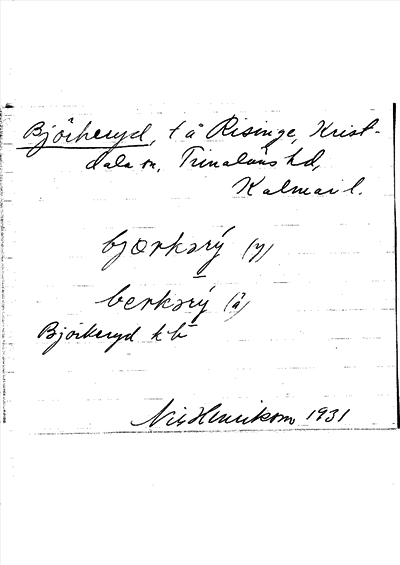 Björkeryd, t å Risinge, Krist-
dala sn, Tunaläns hd,
Kalmar l.
bjœrkərý (y)
berkərý (ä)
Björkeryd kb
Nils Henrikson 1931